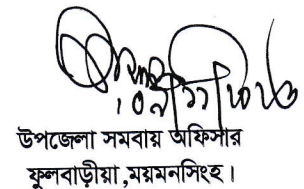 উপজেলা সমবায় অফিসার
ফুলবাড়ীয়া,ময়মনসিংহ।